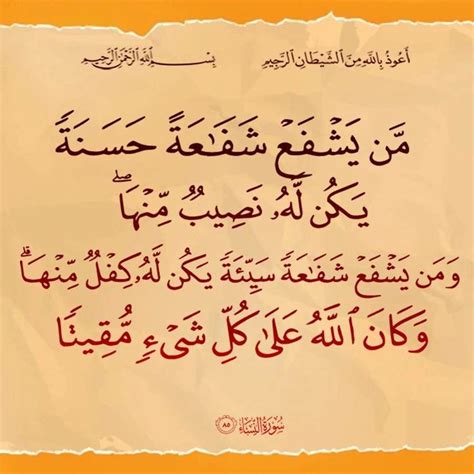 أَعُوذُ بِٱللَّهِ مِنَ ٱلشَّيْطَانِ ٱلرَّجِيمِ بِسْمِ ٱللَّهِ ٱلرَّحْمَٰنِ ٱلرَّحِيمِ
مَّن يَشْفَعْ شَفَٰعَةً حَسَنَةً
يَكُن لَّهُۥ نَصِيبٌ مِّنْهَا ۖ
وَمَن يَشْفَعْ شَفَٰعَةً سَيِّئَةً يَكُن لَّهُۥ كِفْلٌ مِّنْهَا ۗ
وَكَانَ ٱللَّهُ عَلَىٰ كُلِّ شَىْءٍ مُّقِيتًا
سُورَةُ النِّسَاءِ ٨٥